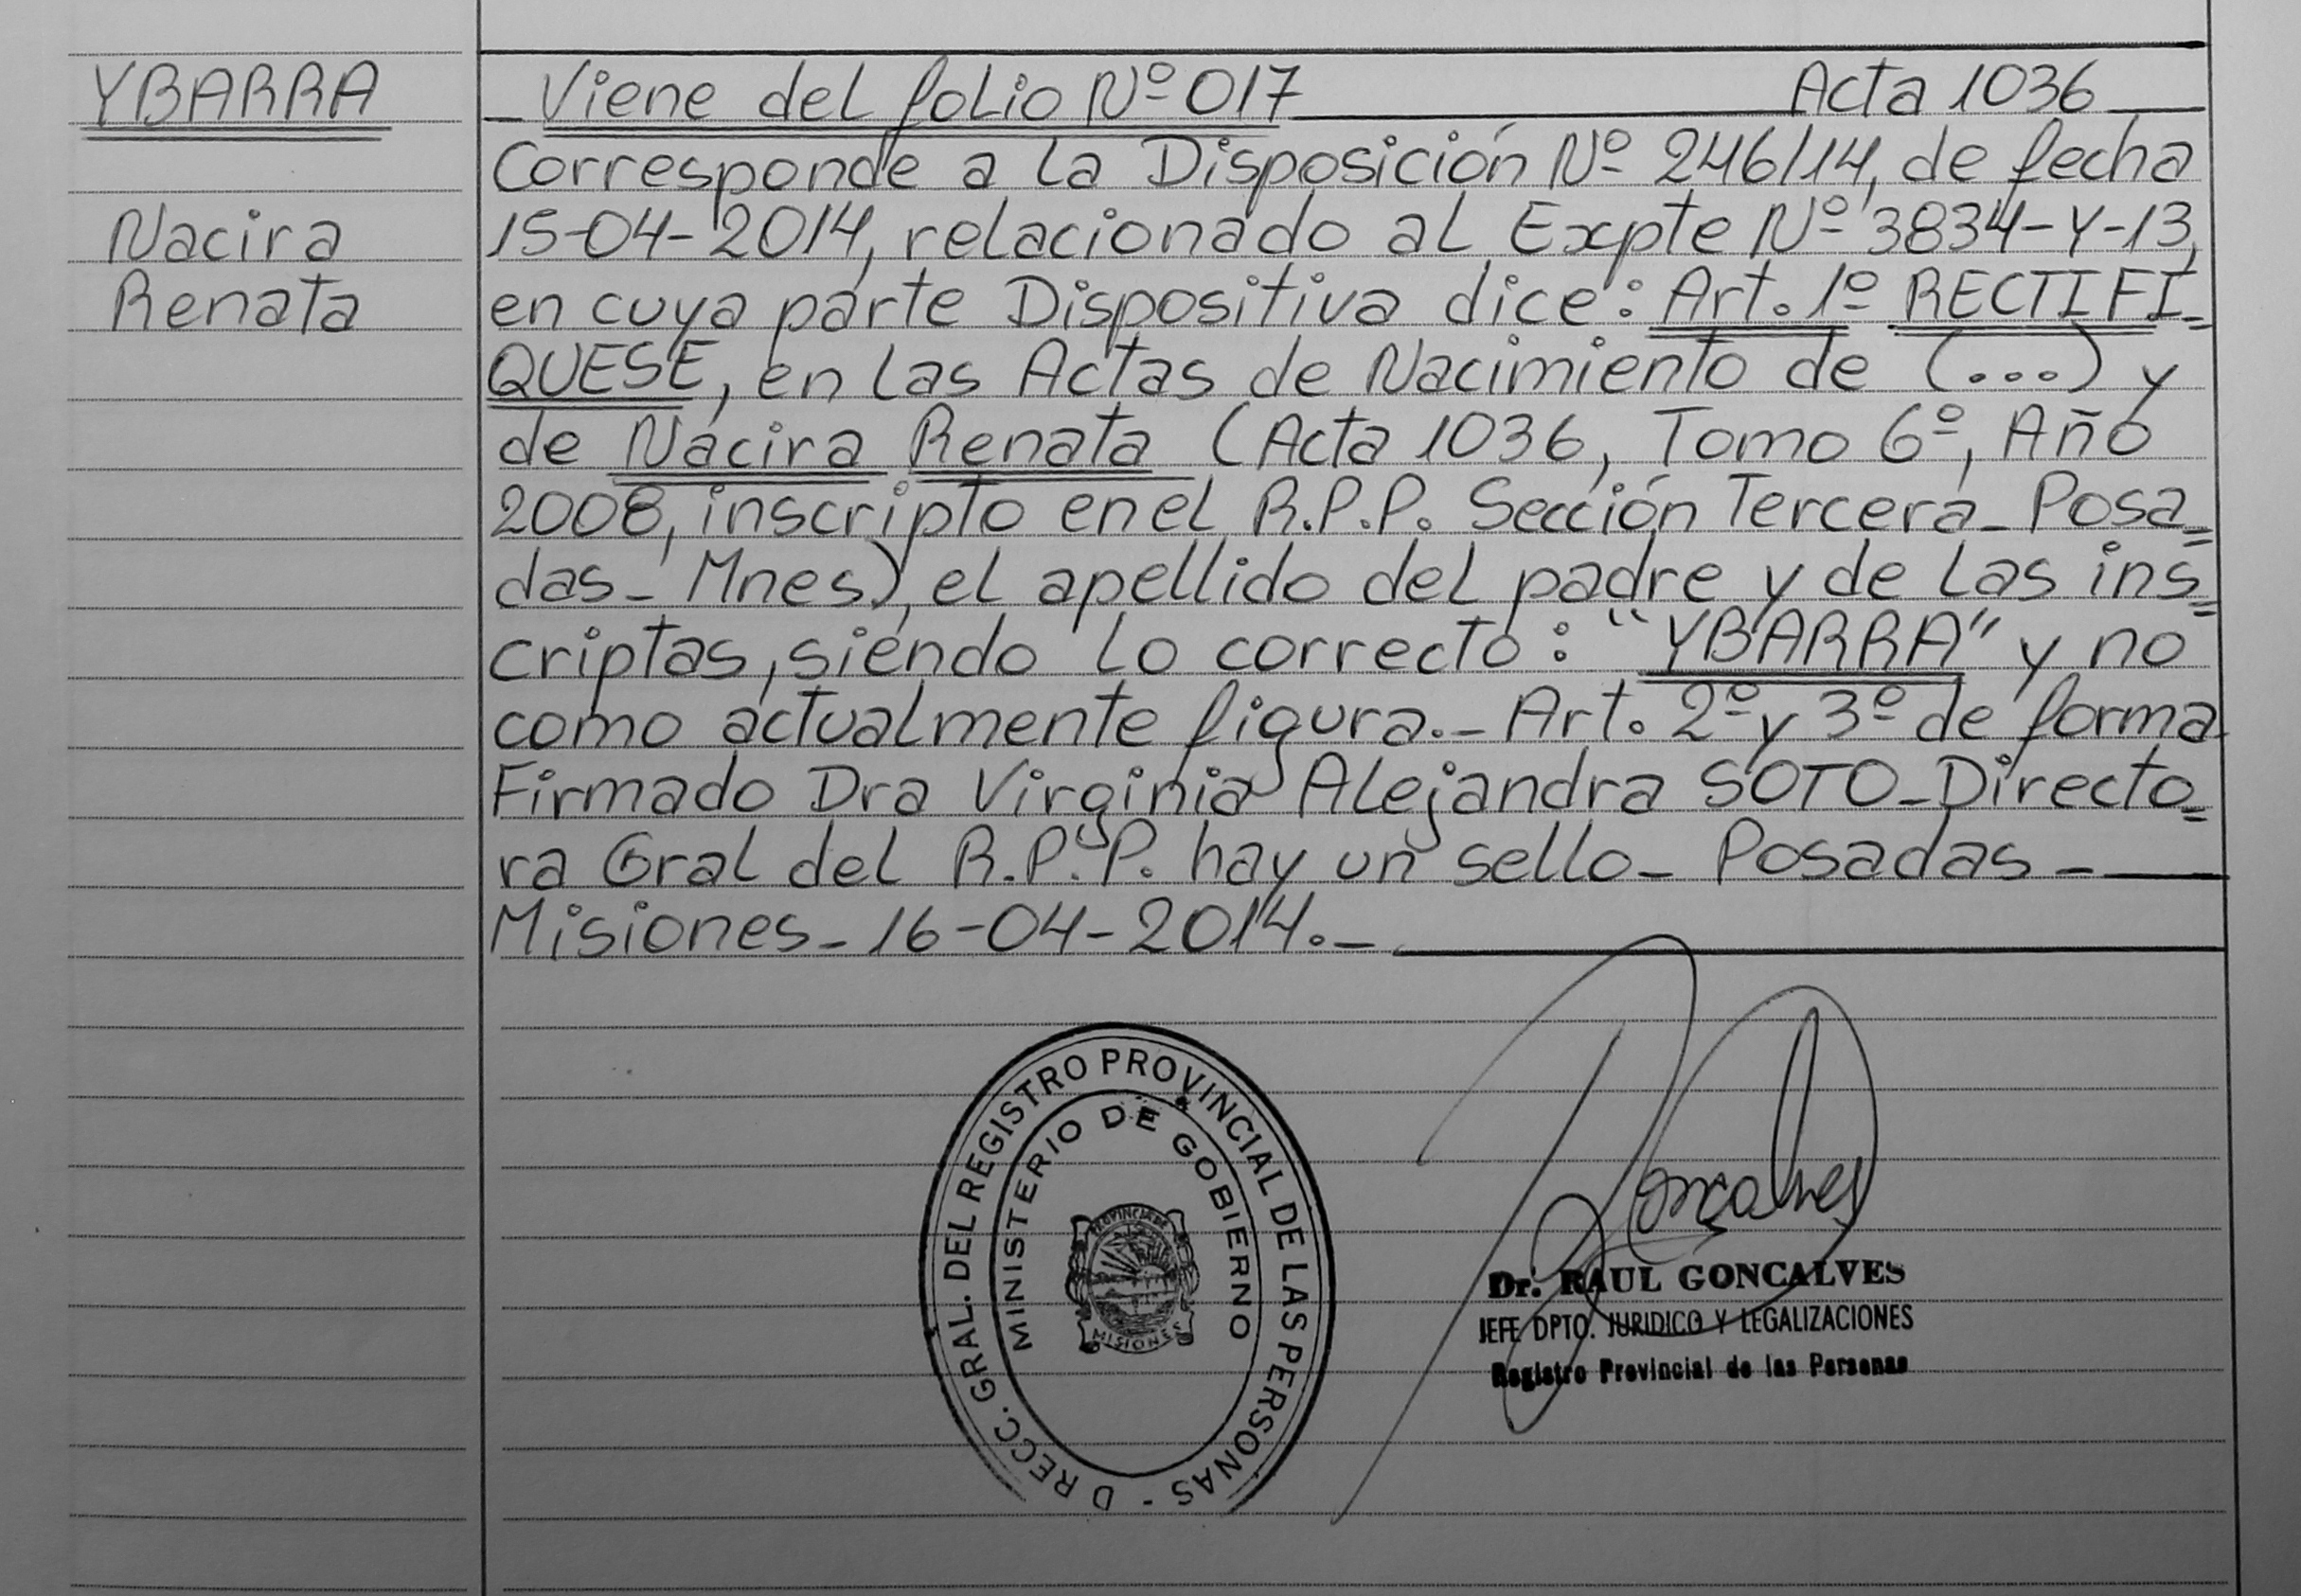 YBARRA
Nacira
Renata
_ Viene del folio Nº 017 Acta 1036
Corresponde a la Disposición Nº 246/14, de fecha
15-04-2014, relacionado al Expte Nº 3834-Y-13,
en cuya parte Dispositiva dice: Art. 1º RECTIFI=
QUESE, en las Actas de Nacimiento de (...) y
de Nacira Renata (Acta 1036, Tomo 6º, Año
2008, inscripto en el R.P.P. Sección Tercera_ Posa=
das_ Mnes), el apellido del padre y de las ins=
criptas, siendo lo correcto: "YBARRA" y no
como actualmente figura._ Art. 2º y 3º de forma
Firmado Dra Virginia Alejandra SOTO_ Directo=
ra Gral del R.P.P. hay un sello_ Posadas_
Misiones_ 16-04-2014._
DRECC. GRAL. DEL REGISTRO PROVINCIAL DE LAS PERSONAS -
MINISTERIO DE GOBIERNO
PROVINCIA DE
MISIONES
Goncalves
Dr. RAUL GONCALVES
JEFE DPTO. JURIDICO Y LEGALIZACIONES
Registro Provincial de las Personas